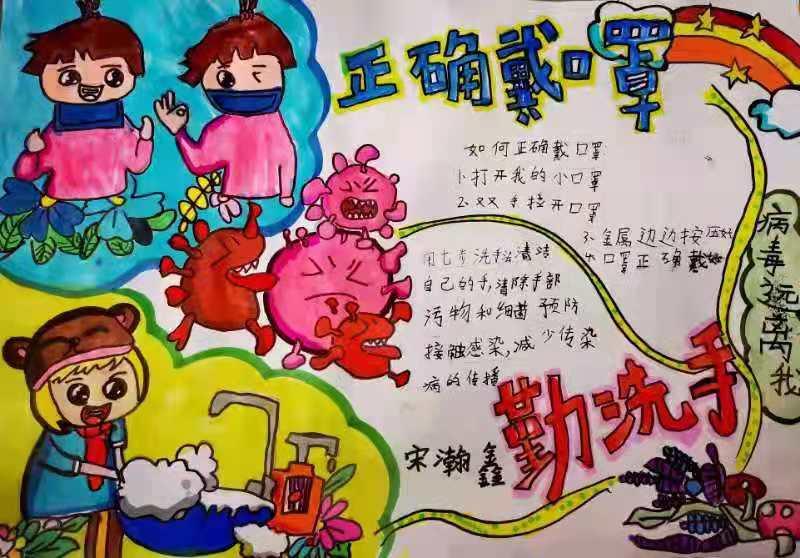 正确戴口罩
如何正确戴口罩
1、打开我的小口罩
2、双手拉开口罩
3、金属边边按压好
4、口罩正确戴好
用七步洗手清洁
自己的手,清除手部
污物和细菌预防
接触感染,减少传染
病的传播
病毒远离我
勤洗手
宋瀚鑫